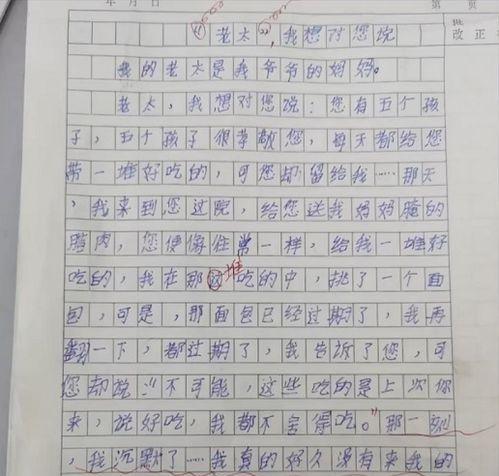 年 月 日 第 页
“老太”,我想对您说
批
改正
我的老太是我爷爷的妈妈。
老太,我想对您说:您有五个孩
子,五个孩子很孝敬您,每天都给您
带一堆好吃的,可您却留给我……那天
,我来到您过院,给您送我妈妈腌的
腊肉,您便像往常一样,给我一堆好
堆
吃的,我在那吃的中,挑了一个面
包,可是,那面包已经过期了,我再
翻一下,都过期了,我告诉了您,可
您却说:“不可能,这些吃的是上次你
来,说好吃,我都不舍得吃。”那一刻
,我沉默了……我真的好久没有来我的